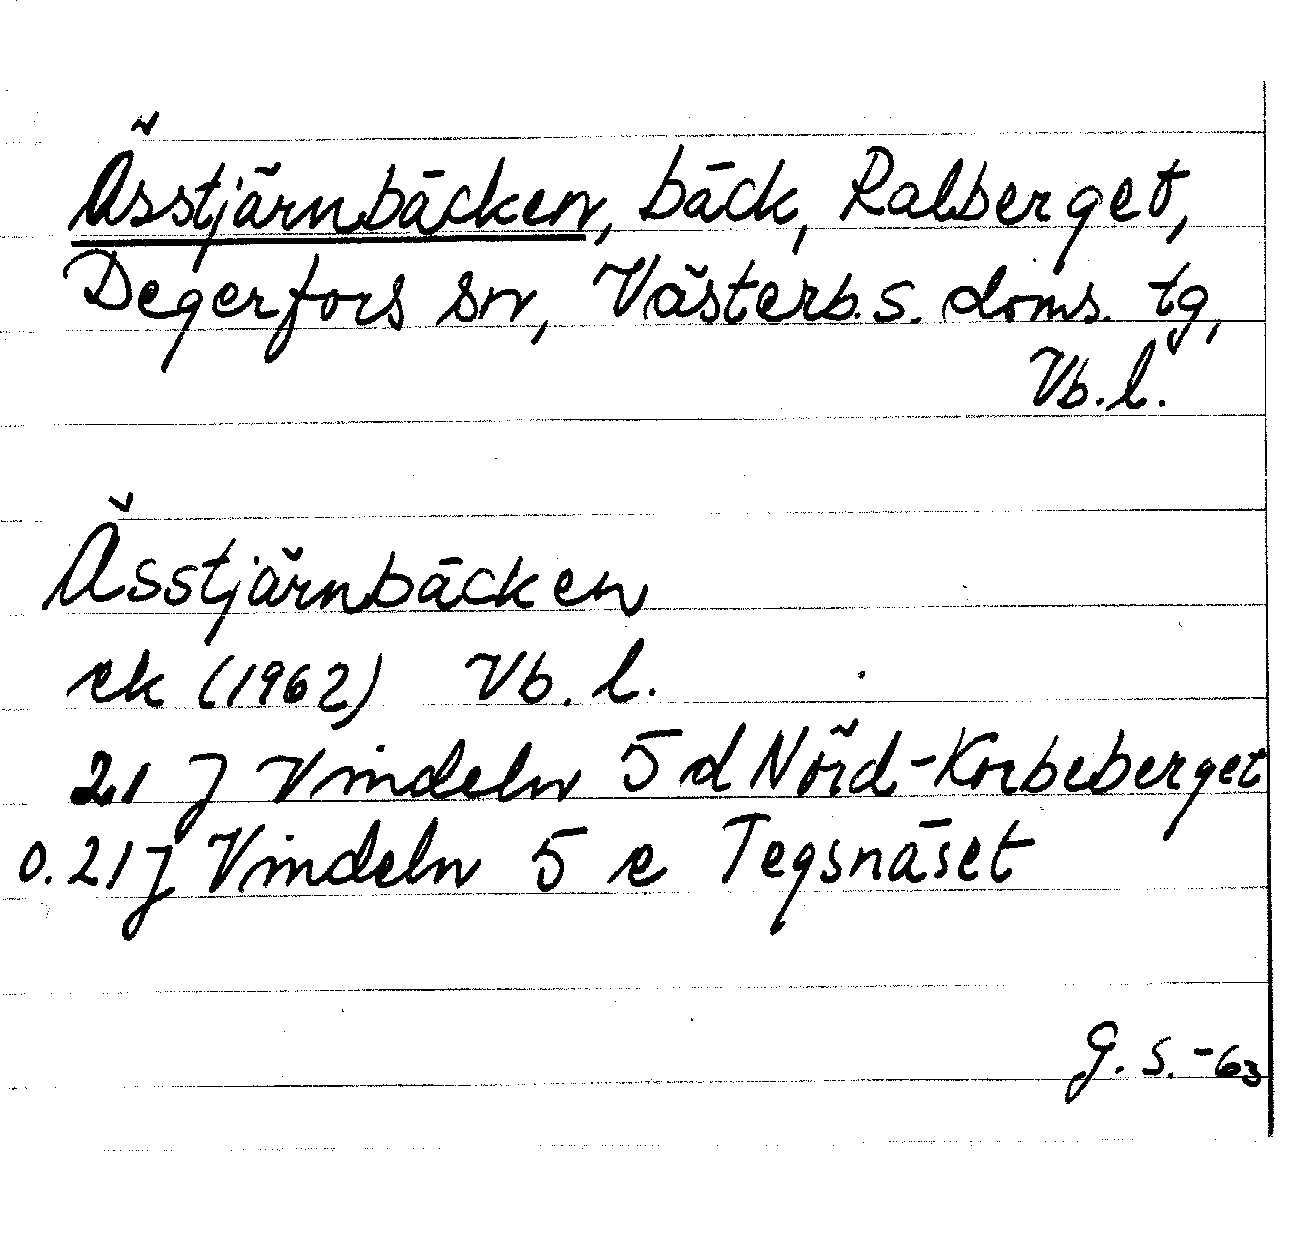 Ässtjärnbäcken, bäck, Ralberget,
Degerfors sn, Västerb. s. doms. tg,
Vb. l.
Ässtjärnbäcken
ek (1962) Vb. l.
21 J Vindeln 5 d Nörd-Korbeberget
o. 21 J Vindeln 5 e Tegsnäset
G. S. -63